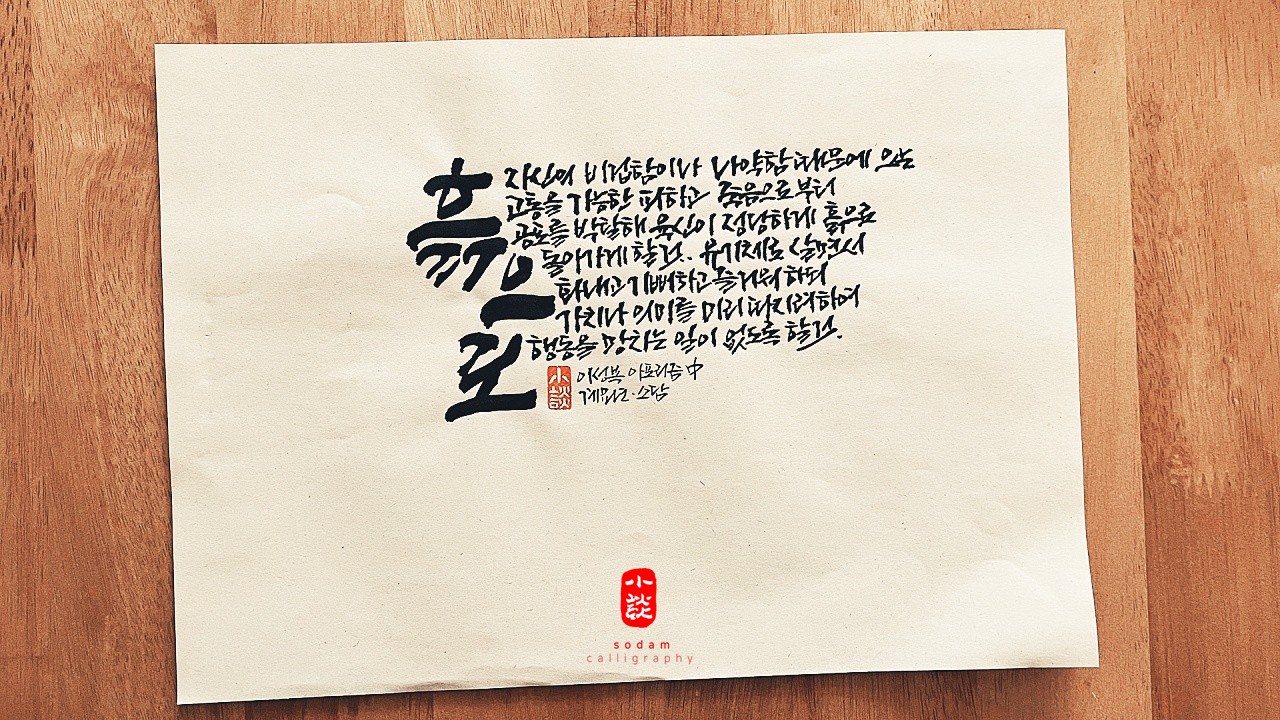 흙으로
자신의 비겁함이나 나약함 때문에 오는
고통을 가능한 피하고 죽음으로부터
공포를 박탈해 육신이 정당하게 흙으로
돌아가게 할 것. 유기체로 살면서
화내고 기뻐하고 즐거워하되
가치나 의미를 미리 따지려하여
행동을 망치는 일이 없도록 할 것.
小談
이성복 아포리즘 中
계묘년·소담
小談
sodam
calligraphy